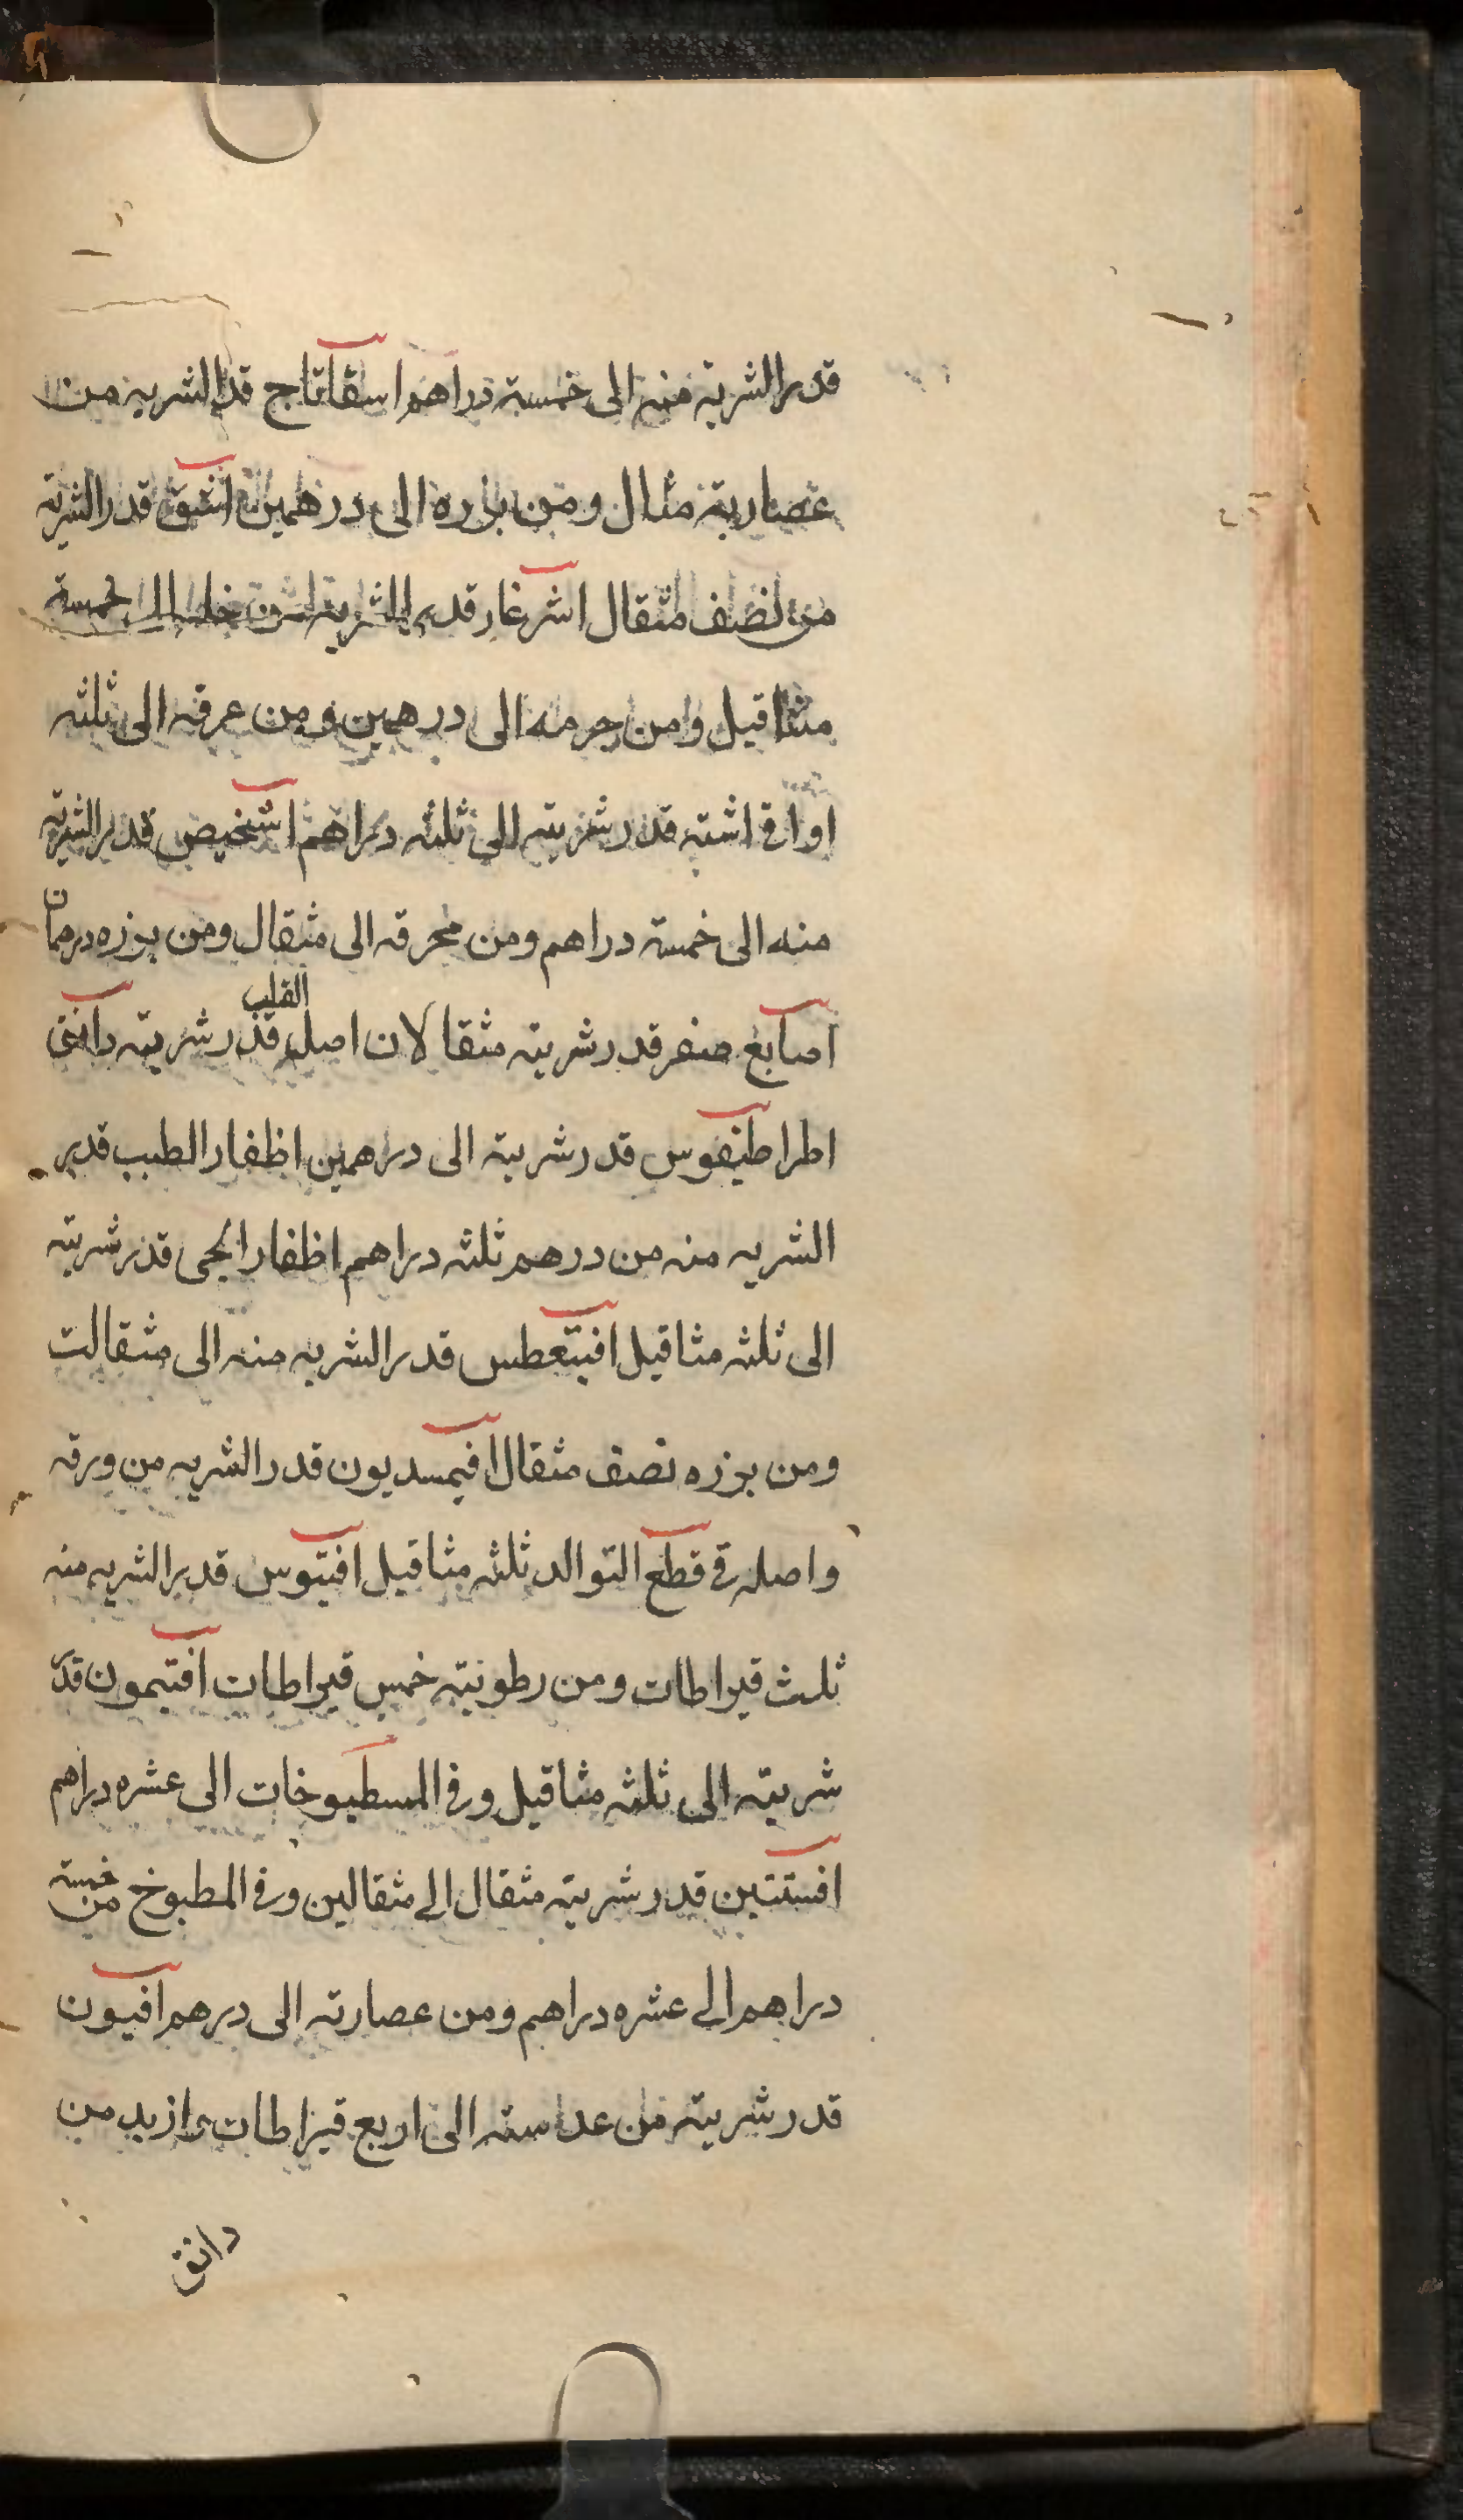 قدر الشربة منه الى خمسة دراهم اسقاتاج قدر الشربه من
عصارته مثال ومن بزره الى درهمين اشق قدر الشربة
من نصف مثقال اشرغار قدر الشربة من خله الى خمسة
مثاقيل ومن جرمه الى درهمين ومن عرقه الى ثلثه
اواق اشته قدر شربته الى ثلثه دراهم اشخيص قدر الشربة
منه الى خمسة دراهم ومن محرقه الى مثقال ومن بزره درهمان
اصابع صفر قدر شربته مثقالان اصل القلب قدر شربته دانق
اطراطيفوس قدر شربته الى درهمين اظفار الطيب قدر
الشربه منه من درهم ثلثه دراهم اظفار الجى قدر شربته
الى ثلثه مثاقيل افيتعطس قدر الشربه منه الى مثقالت
ومن بزره نصف مثقال افيمسديون قدر الشربه من ورقه
واصله فى قطع التوالد ثلثه مثاقيل افتيوس قدر الشربه منه
ثلث قيراطات ومن رطوبته خمس قيراطات افتيمون قدر
شربته الى ثلثه مثاقيل وفى المسطبوخات الى عشره دراهم
افستتين قدر شربته مثقال الى مثقالين وفى المطبوخ من خمسة
دراهم الى عشره دراهم ومن عصارته الى درهم افيون
قدر شربته من عداسته الى اربع قيراطات وازيد من
دانق